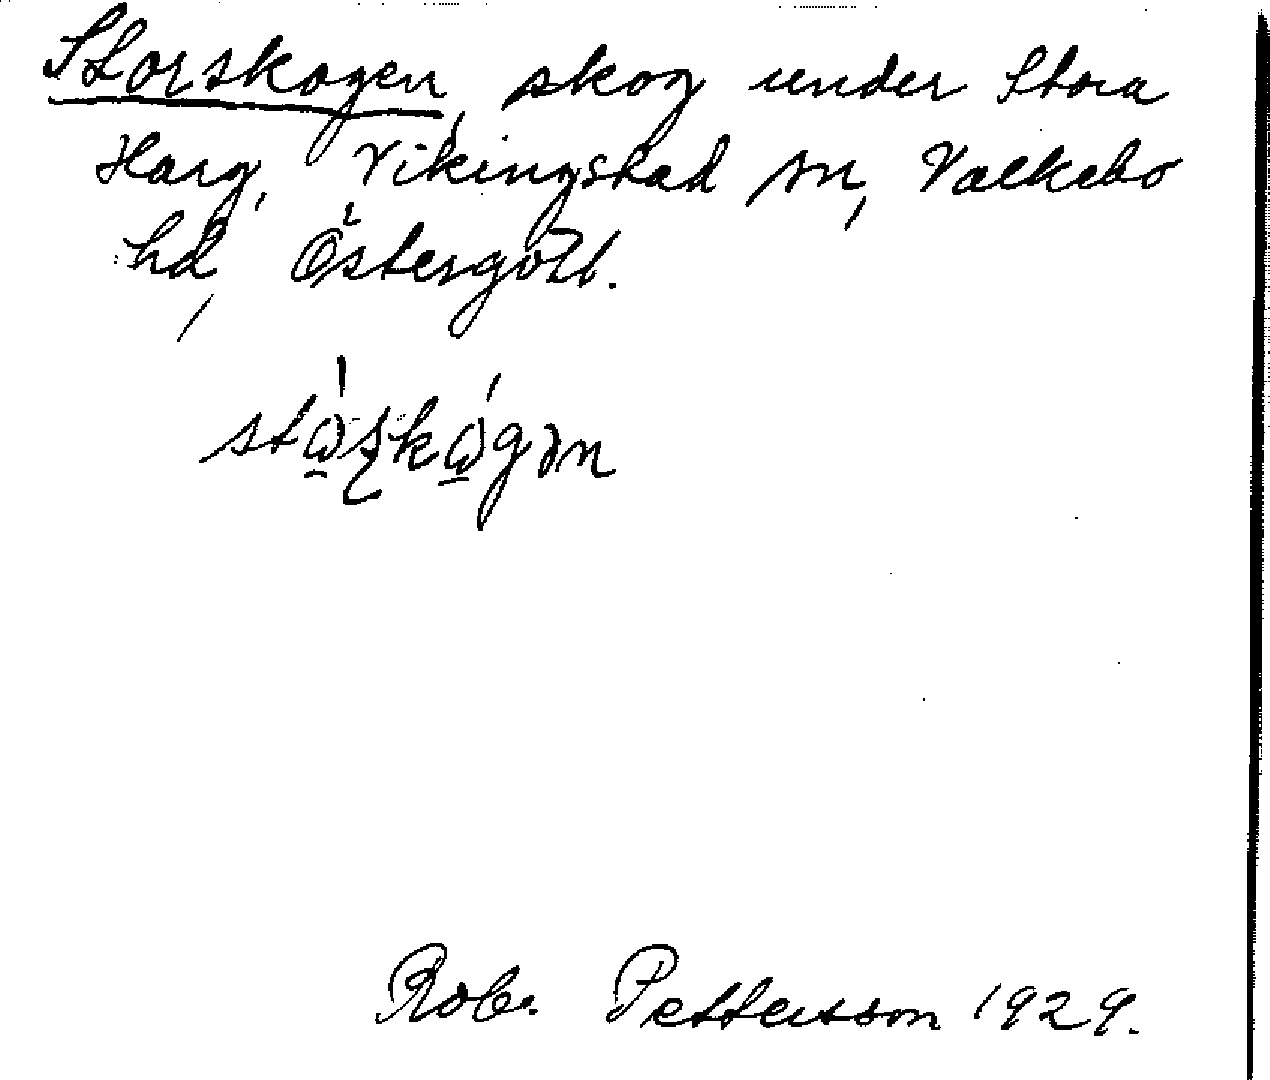 Storskogen, skog under Stora
Harg, Vikingstad sn, Valkebo
hd, Östergötl.
Rob. Pettersson 1929.